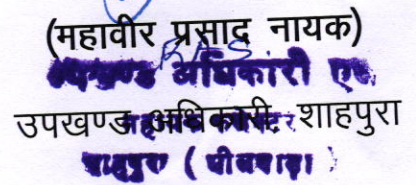 (महावीर प्रसाद नायक)
RAS
उपखण्ड अधिकारी एवं
उपखण्ड अधिकारी, शाहपुरा
शाहपुरा ( भीलवाड़ा )